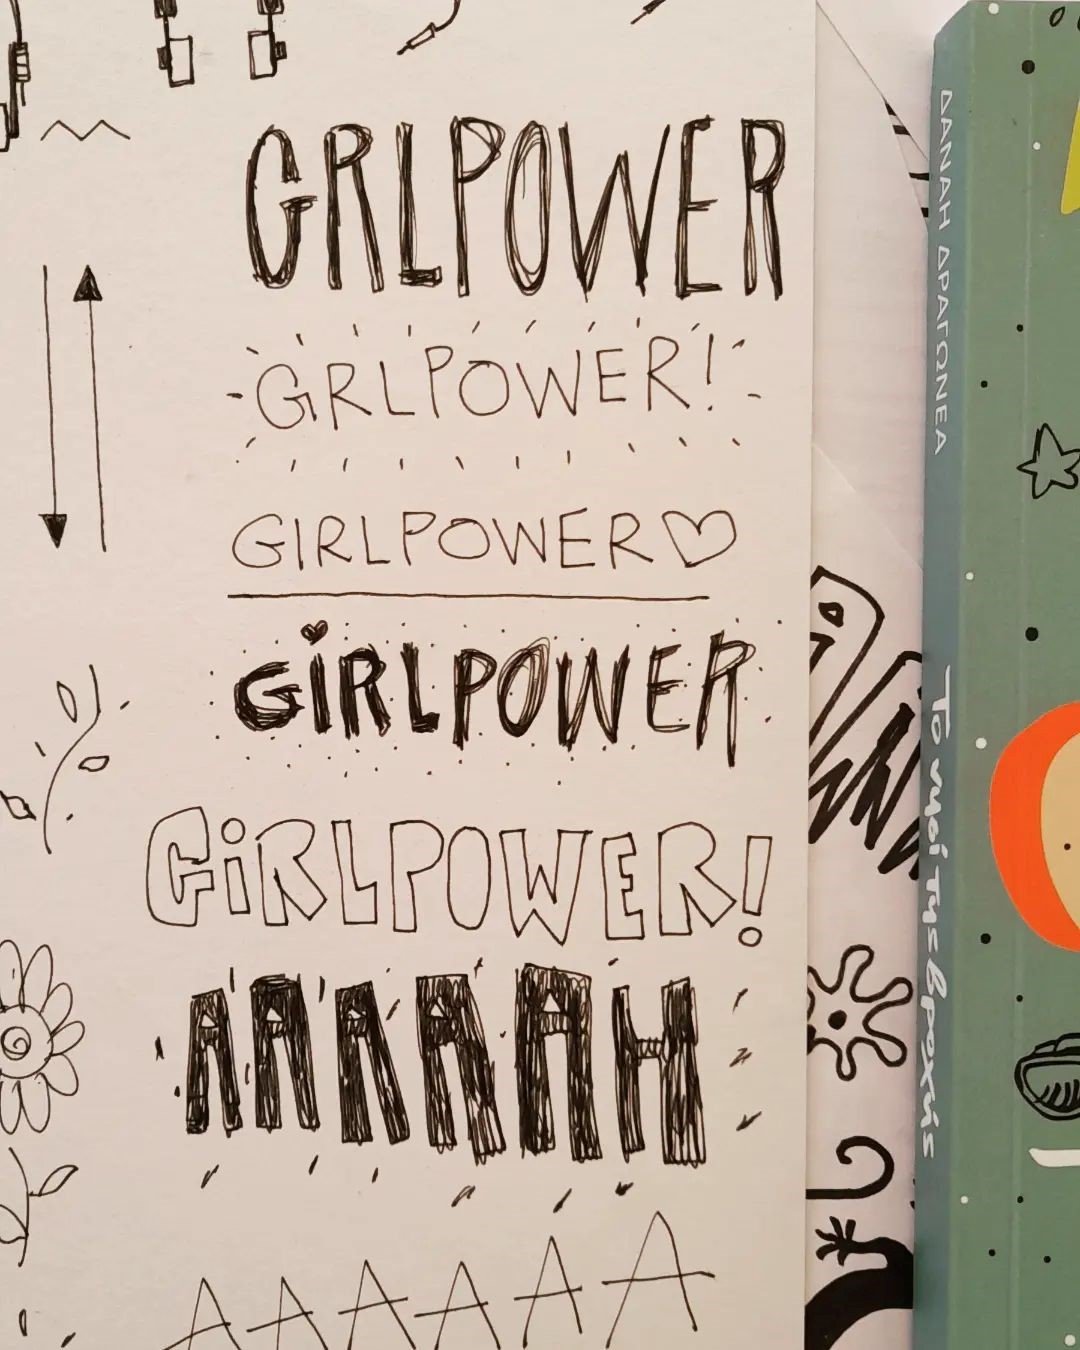 GRLPOWER
GRLPOWER!
GIRLPOWER
GIRLPOWER
GIRLPOWER!
AAAAAH
AAAAAA
ΔΑΝΑΗ ΔΡΑΓΩΝΕΑ
Το νησί της βροχής